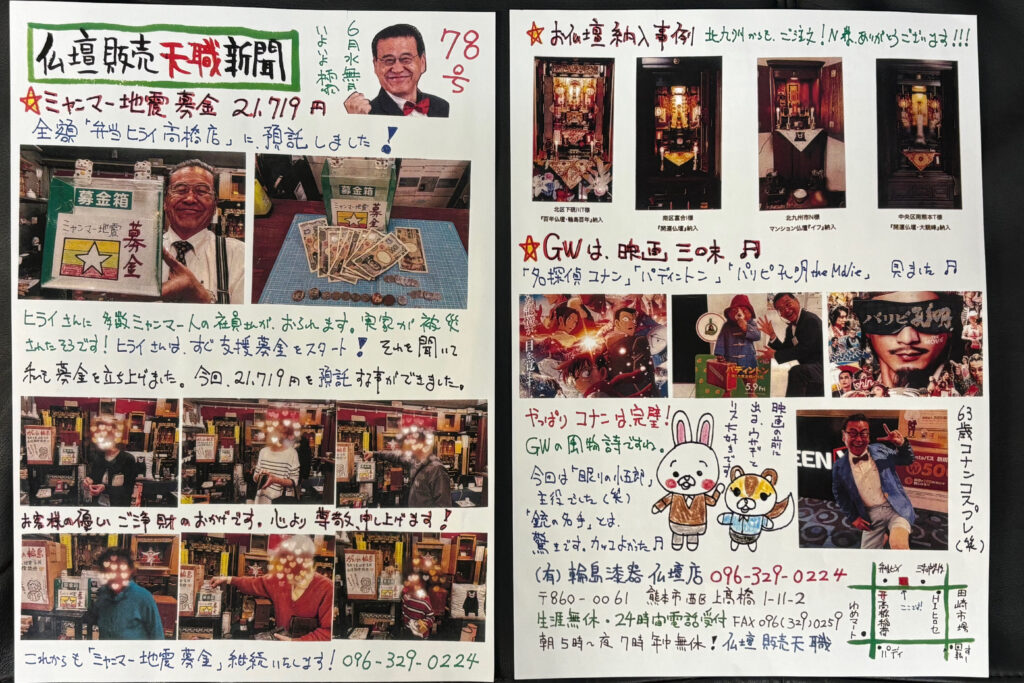 仏壇販売天職新聞
6月水無月
いよいよ梅雨
78号
ミャンマー地震募金 21,719円
全額「弁当ヒライ高橋店」に、預託しました!
募金箱
ミャンマー地震
募金
募金箱
ミャンマー地震
募金
ヒライさんに多数ミャンマー人の社員さんが、おられます。実家が被災
されたそうです!ヒライさんは、すぐ支援募金をスタート! それを聞いて
私も募金を立ち上げました。今回、21,719円を預託する事ができました。
お客様の優しいご浄財のおかげです。心より尊敬申し上げます!
これからも「ミャンマー地震募金」継続いたします! 096-329-0224
お仏壇納入事例 北九州からも、ご注文!N様、ありがとうございます!!!
北区下硯川T様
『百年仏壇・輪島百年』納入
南区富合I様
『開運仏壇』納入
北九州市N様
マンション仏壇『イフ』納入
中央区南熊本T様
『開運仏壇・大観峰』納入
GWは、映画三昧♬
「名探偵コナン」「パディントン」「パリピ孔明the Movie」 見ました♬
パディントン
5.9 Fri
パリピ孔明
やっぱりコナンは、完璧!
GWの風物詩ですね。
今回は「眠りの小五郎」
主役でした(笑)
「銃の名手」とは、
驚きです。カッコよかった♬
映画の前に
出る、ウサギと
リス大好きです
63歳コナンコスプレ(笑)
(有)輪島漆器仏壇店 096-329-0224
〒860-0061 熊本市西区上高橋1-11-2
生涯無休・24時間電話受付 FAX096(329)0259
朝5時〜夜7時年中無休!仏壇販売天職
ここ
高橋稲荷
ゆめマート
パディ
田崎市場